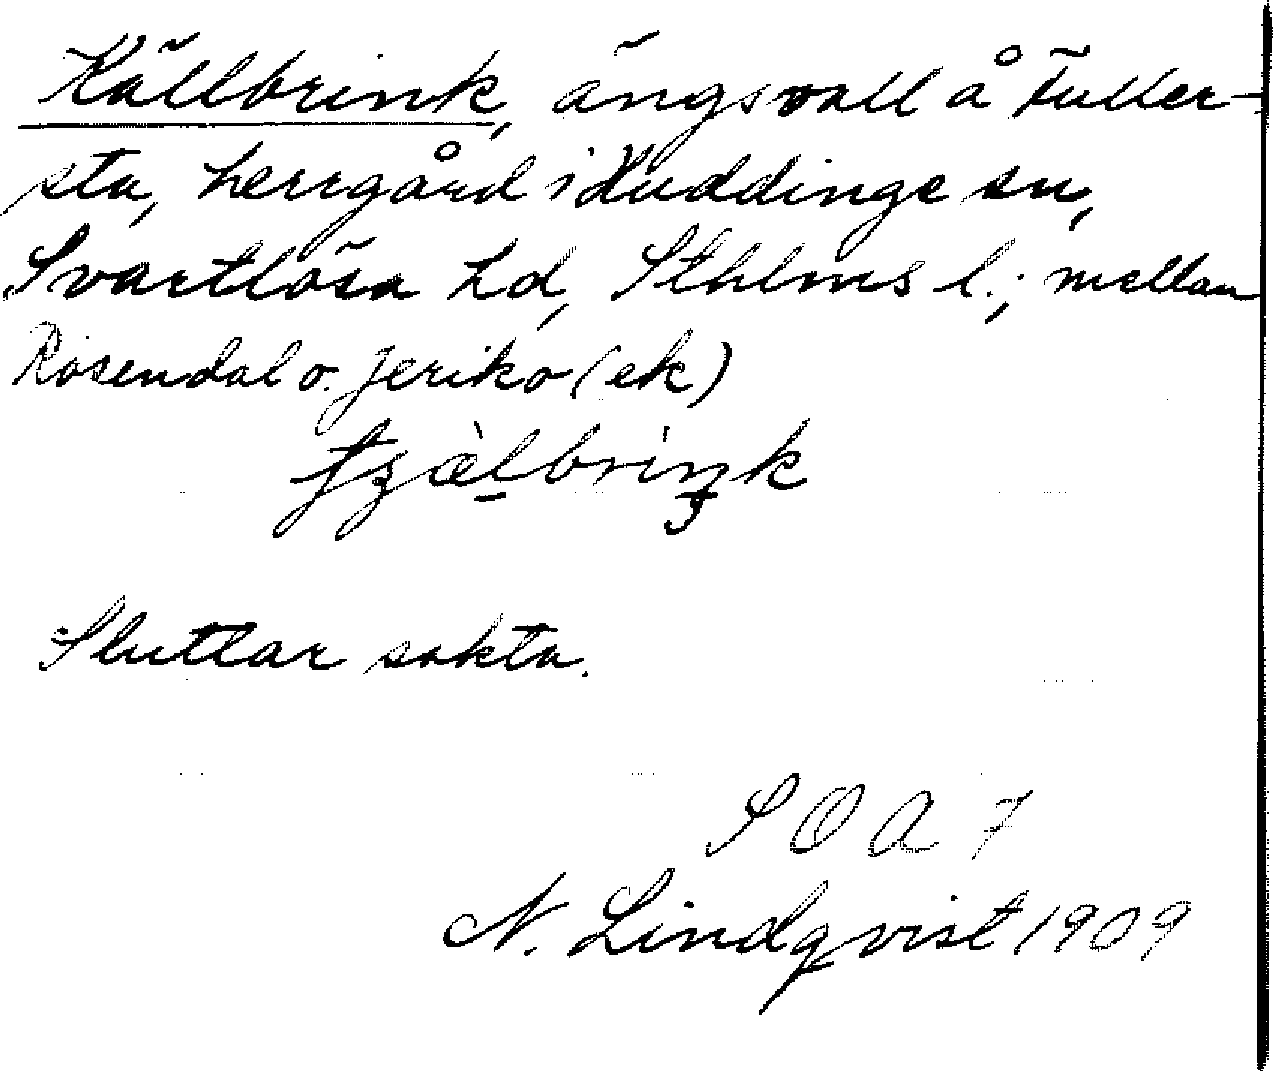 Källbrink, ängsvall å Fuller-
sta, herrgård i Huddinge sn,
Svartlösa hd, Sthlms l.; mellan
Rosendal o. Jeriko (ek)
Sluttar sakta.
S O A 7
N. Lindqvist 1909